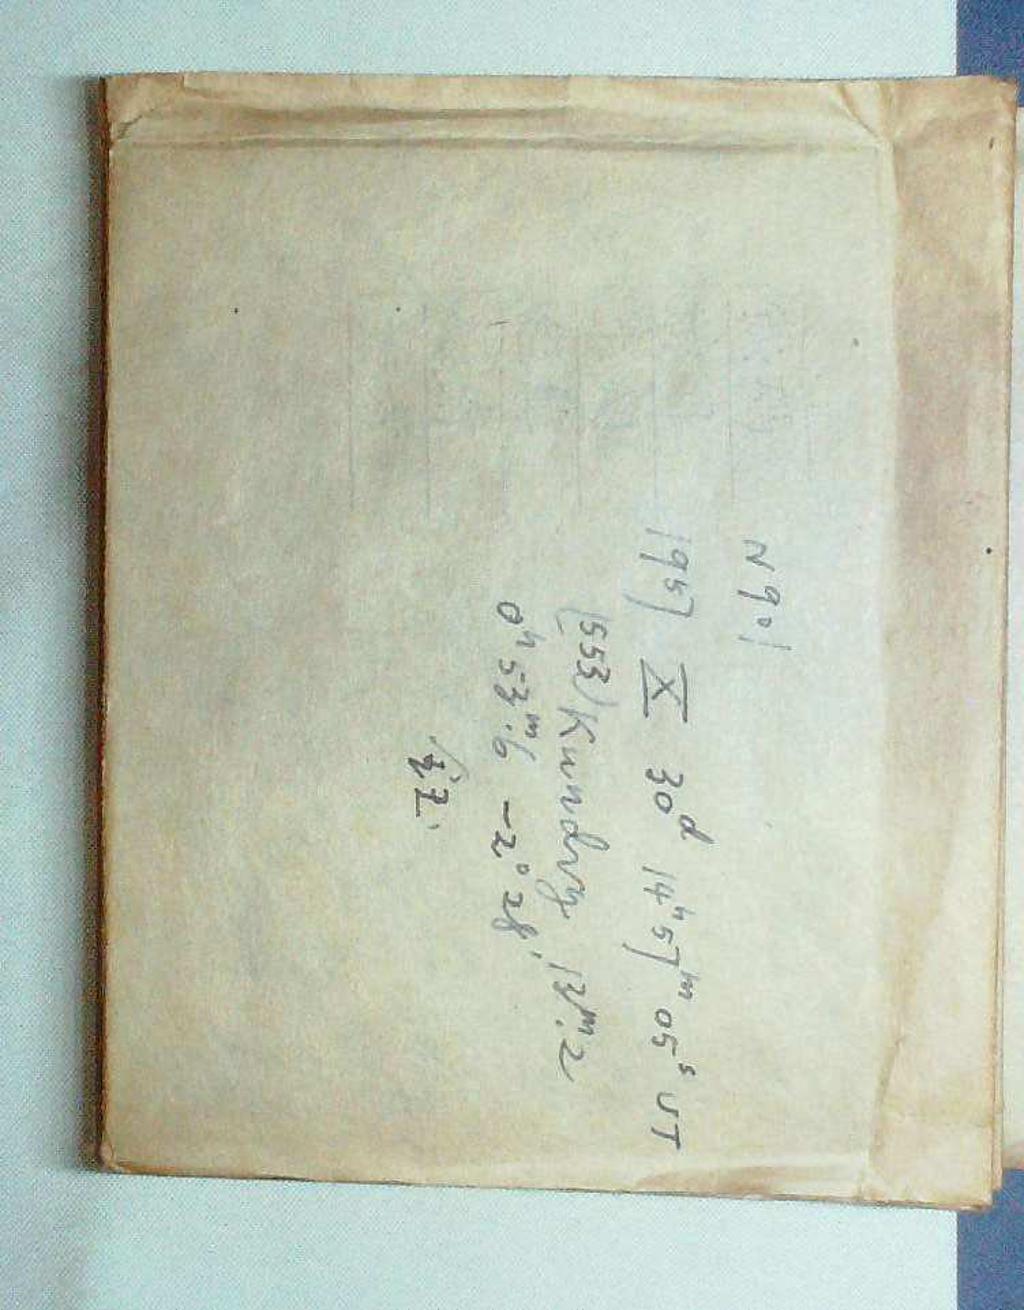 N 901
1957 X 30ᵈ 14ʰ57ᵐ05ˢ UT
(553) Kundry 13ᵐ.2
0ʰ53ᵐ.6 -2°28'